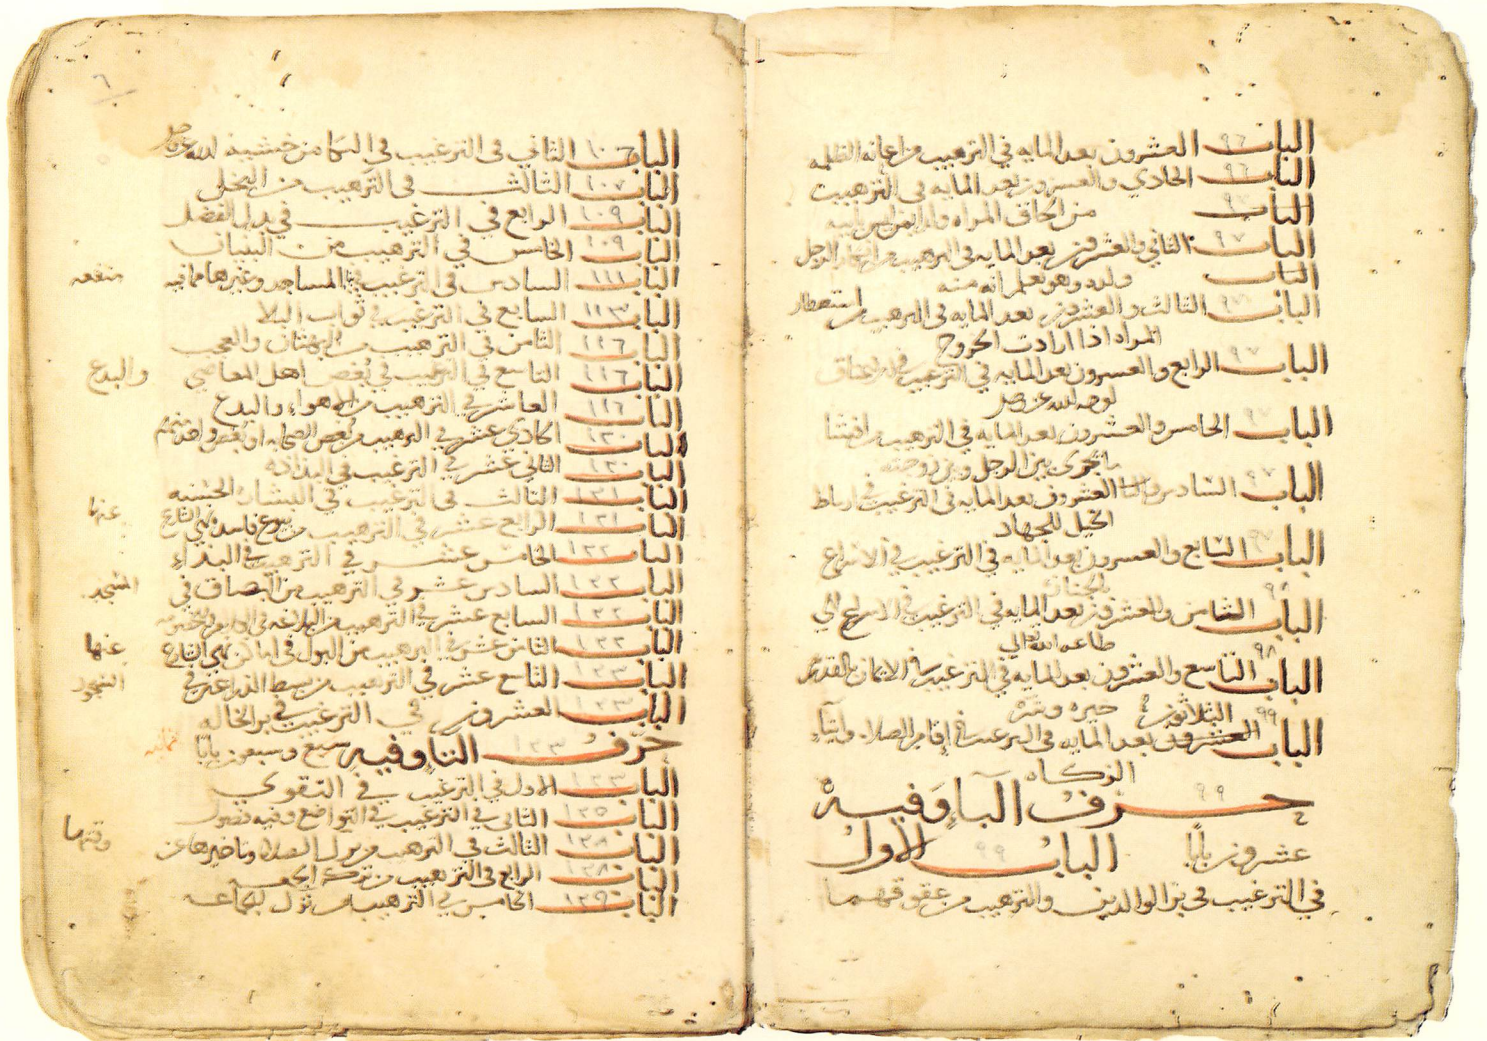 الباب ٩٦ العشرون بعد المايه في الترهيب من اعانه الظلمه
الباب ٩٦ الحادي والعشرون بعد المايه في الترهيب
الباب ٩٧ من الحاق المراه ولدا لمن ليس ابيه
الباب ٩٧ الثاني والعشرون بعد المايه في الترهيب من انكار الرجل
الباب ولده وهو يعلم انه منه
الباب ٩٧ الثالث والعشرون بعد المايه في الترهيب من استعطار
المراه اذا ارادت الخروج
الباب ٩٧ الرابع والعشرون بعد المايه في الترغيب في الاعتاق
لوجه الله عز وجل
الباب ٩٧ الخامس والعشرون بعد المايه في الترهيب من افشا
ما يجري بين الرجل وبين زوجته
الباب ٩٧ السادس والعشرون بعد المايه في الترغيب في ارتباط
الخيل للجهاد
الباب ٩٧ السابع والعشرون بعد المايه في الترغيب في الاسراع
بالجنازه
الباب ٩٨ الثامن والعشرون بعد المايه في الترغيب في الاسراع الي
طاعه الله تعالي
الباب ٩٨ التاسع والعشرون بعد المايه في الترغيب في الايمان بالقدر
خيره وشره
الباب ٩٩ الثلاثون بعد المايه في الترغيب في اقام الصلاه وايتاء
الزكاه
حرف ٩٩ البآء وفيه
عشرون بابًا الباب ٩٩ الاول
في الترغيب في بر الوالدين والترهيب من عقوقهما
٦
الباب ١٠٦ الثاني في الترغيب في البكا من خشية الله عز وجل
الباب ١٠٧ الثالث في الترهيب من البخل
الباب ١٠٩ الرابع في الترغيب في بذل الفضل
الباب ١٠٩ الخامس في الترهيب من البنيان
الباب ١١١ السادس في الترغيب في المساجد وغيرها مما فيه منفعه
الباب ١١٣ السابع في الترغيب في ثواب البلا
الباب ١١٦ الثامن في الترهيب من البهتان والعجب
الباب ١١٦ التاسع في الترغيب في بغض اهل المعاصي والبدع
الباب ١١٦ العاشر في الترهيب من الاهواء والبدع
الباب ١٢٠ الحادي عشر في الترهيب من بغض الصحابه او بغض واحد منهم
الباب ١٢٠ الثاني عشر في الترغيب في البذاذه
الباب ١٢١ الثالث في الترغيب في البشاره الحسنه
الباب ١٢١ الرابع عشر في الترهيب من بيوع فاسده نهي الشارع عنها
الباب ١٢٢ الخامس عشر في الترهيب من البذاء
الباب ١٢٢ السادس عشر في الترهيب من البصاق في المسجد
الباب ١٢٢ السابع عشر في الترهيب من البلاغه في
الباب ١٢٢ الثامن عشر في الترهيب من البول في اماكن نهي الشارع عنها
الباب ١٢٣ التاسع عشر في الترهيب من بسط الذراعين في السجود
الباب ١٢٣ العشرون في الترغيب في بر الخاله
حرف ١٢٣ التاء وفيه سبع وسبعون بابًا
الباب ١٢٣ الاول في الترغيب في التقوي
الباب ١٢٥ الثاني في الترغيب في التواضع وفيه فصول
الباب ١٢٨ الثالث في الترهيب من ترك الصلاه وتاخيرها عن وقتها
الباب ١٢٨ الرابع في الترهيب من ترك الجمعه
الباب ١٢٩ الخامس في الترهيب من ترك الجماعه